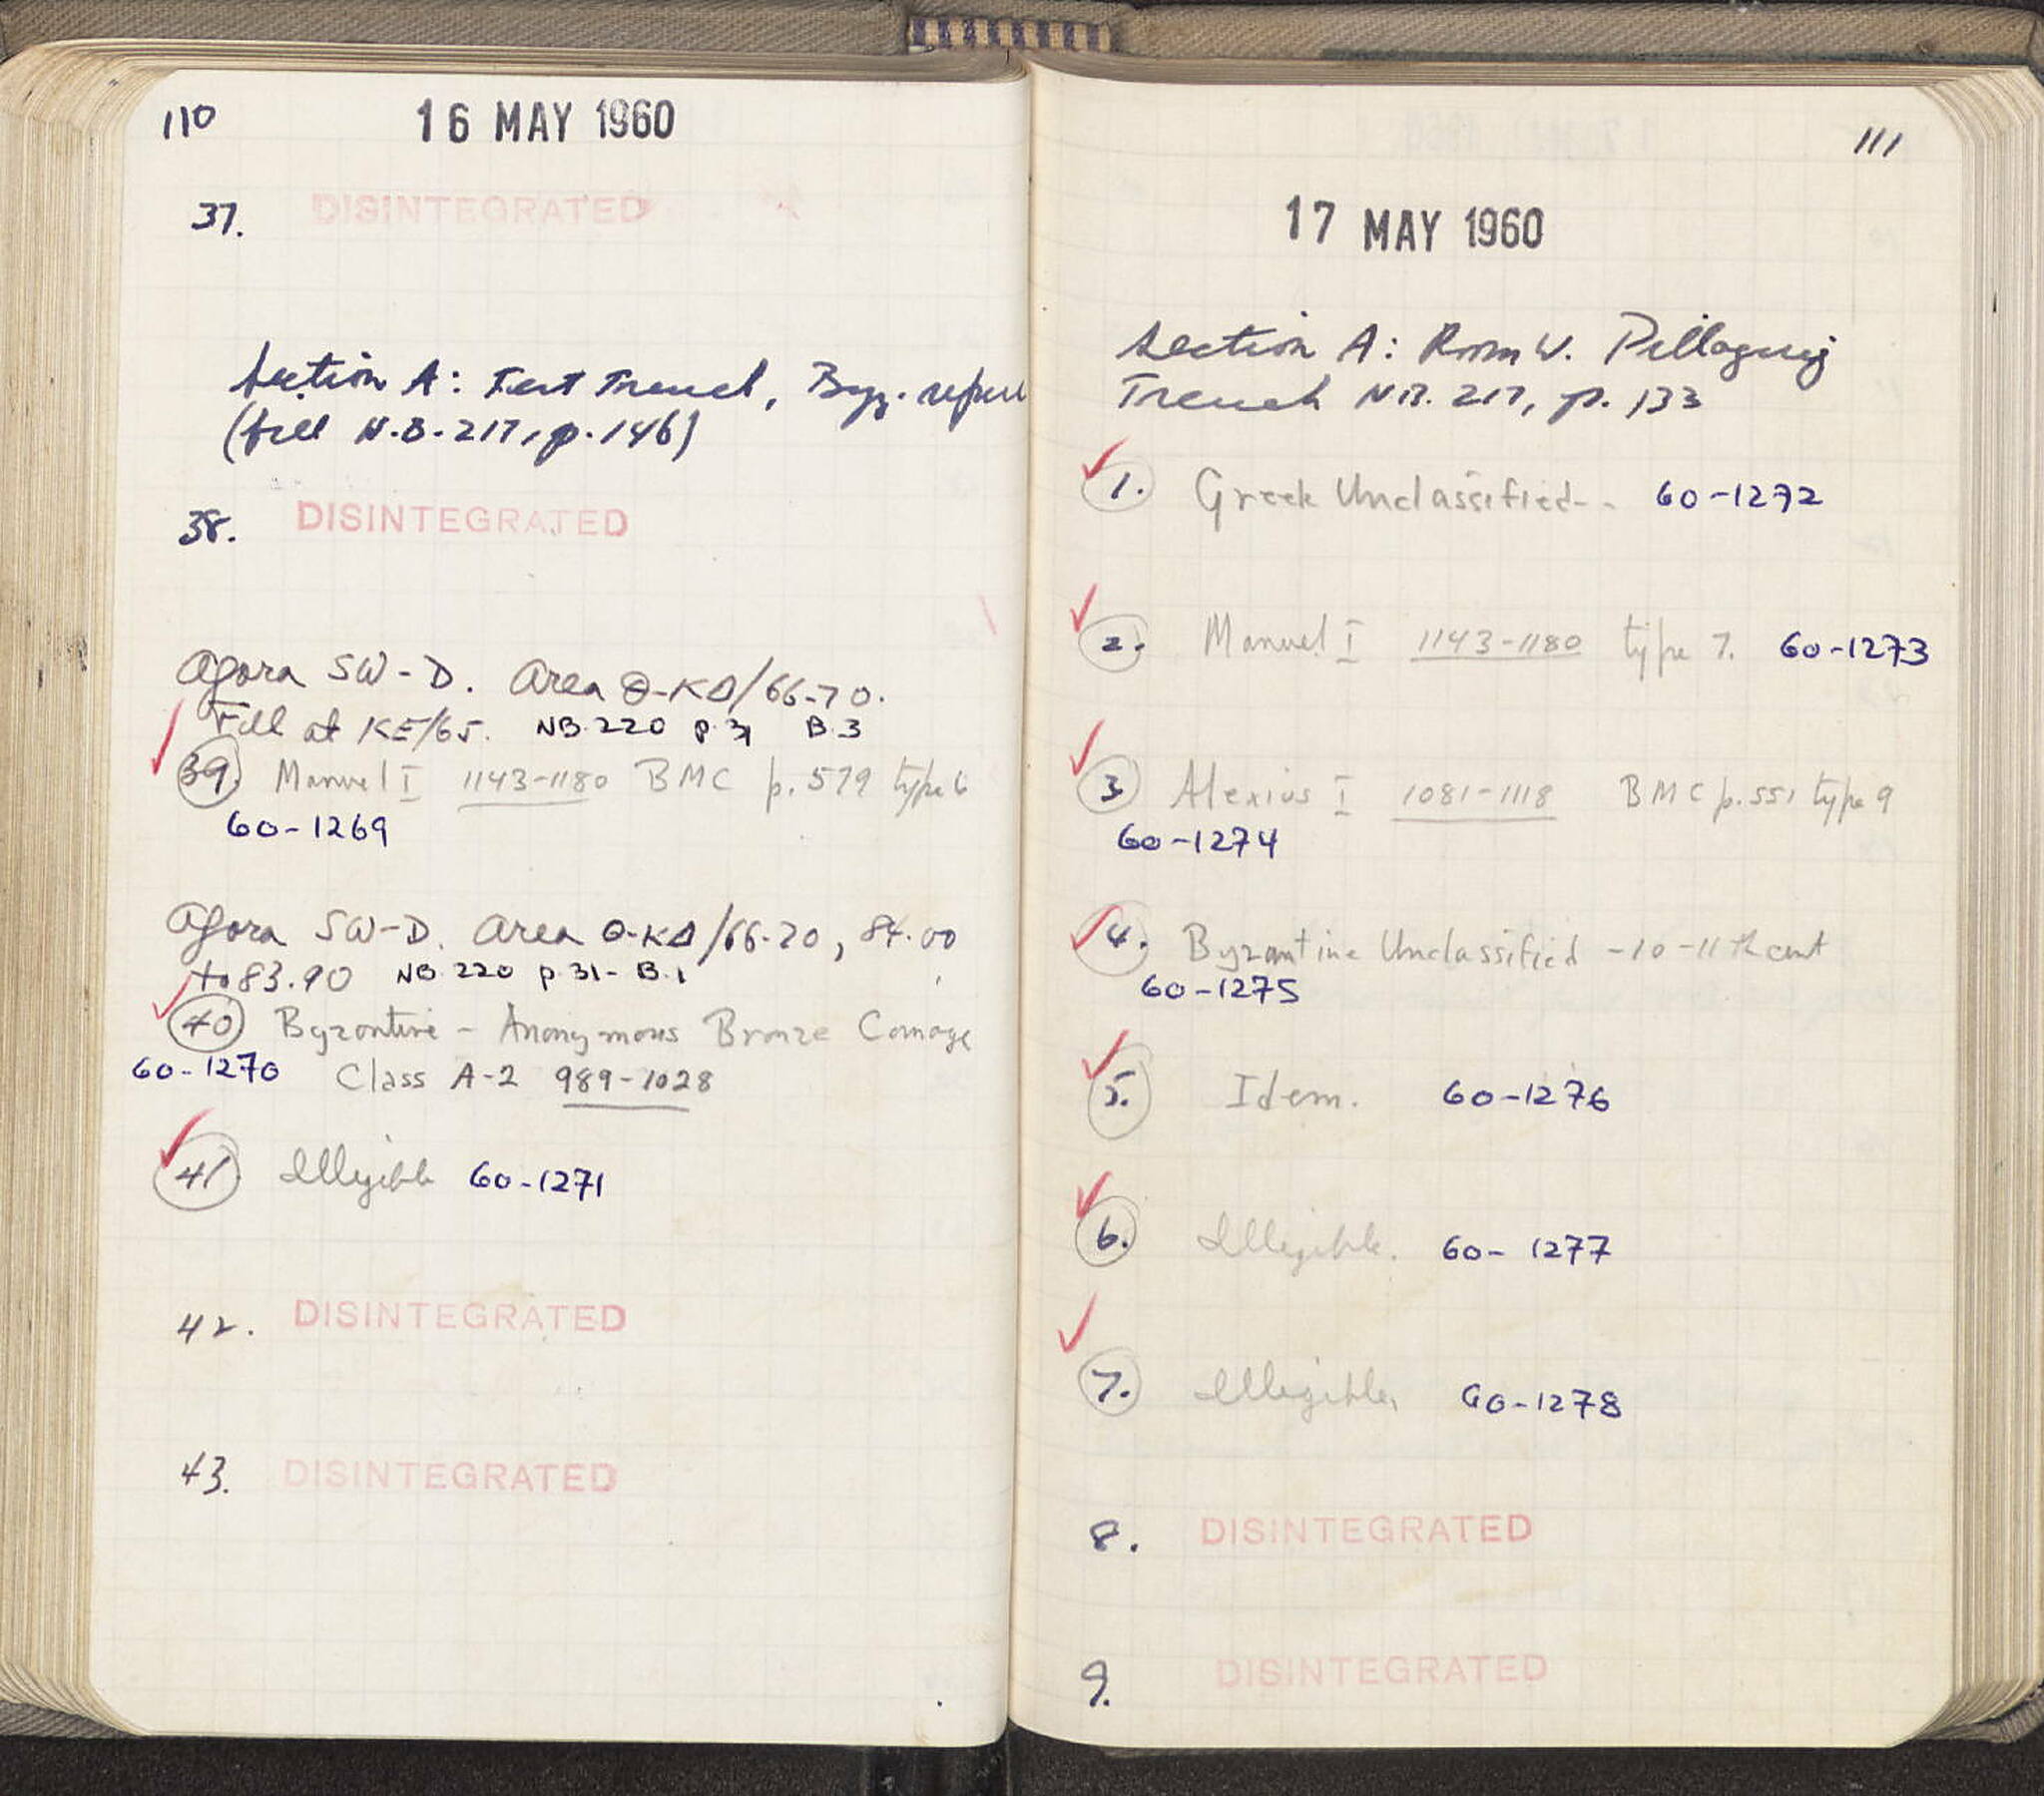 110
16 MAY 1960
37. DISINTEGRATED
Section A: Test Trench, Byz.
(fill N.B. 217, p. 146)
38. DISINTEGRATED
Agora SW-D. Area Θ-KΔ/66-70.
Fill at KE/65. NB. 220 p. 31 B.3
39. Manuel I 1143-1180 BMC p. 579 type 6
60-1269
Agora SW-D. Area Θ-KΔ/66-70, 84.00
to 83.90 NB. 220 p. 31- B.1
40 Byzantine - Anonymous Bronze Coinage
60-1270 Class A-2 989-1028
41 Illegible 60-1271
42. DISINTEGRATED
43. DISINTEGRATED
111
17 MAY 1960
Section A: Room W.
Trench NB. 217, p. 133
1. Greek Unclassified-- 60-1272
2. Manuel I 1143-1180 type 7. 60-1273
3 Alexius I 1081-1118 BMC p. 551 type 9
60-1274
4. Byzantine Unclassified -10-11th cent
60-1275
5. Idem. 60-1276
6. Illegible. 60-1277
7. Illegible, 60-1278
8. DISINTEGRATED
9. DISINTEGRATED